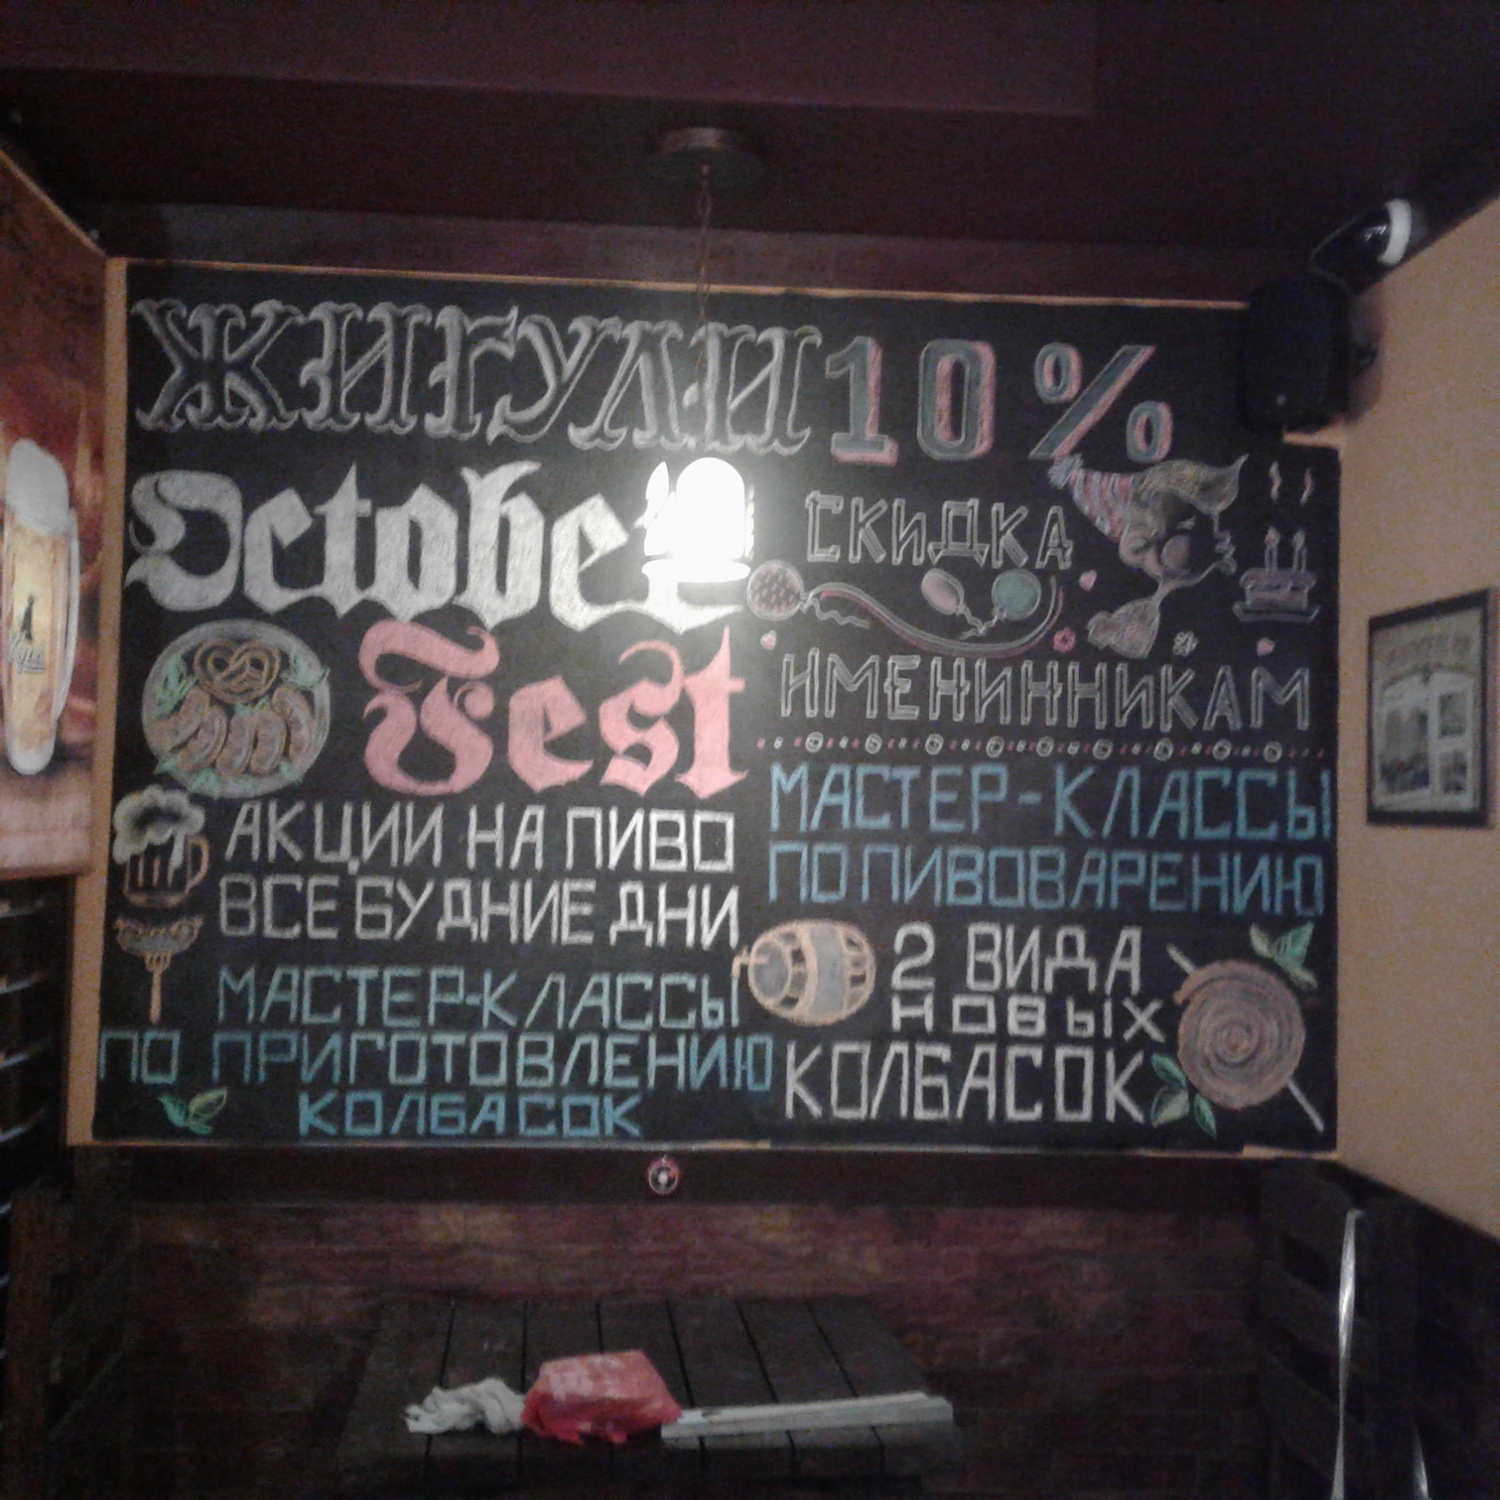 ЖИГУЛИ
October
Fest
АКЦИИ НА ПИВО
ВСЕ БУДНИЕ ДНИ
МАСТЕР-КЛАССЫ
ПО ПРИГОТОВЛЕНИЮ
КОЛБАСОК
10%
СКИДКА
ИМЕНИННИКАМ
МАСТЕР-КЛАССЫ
ПО ПИВОВАРЕНИЮ
2 ВИДА
НОВЫХ
КОЛБАСОК